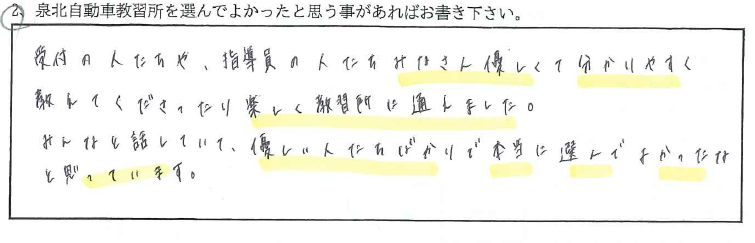 2. 泉北自動車教習所を選んでよかったと思う事があればお書き下さい。
受付の人たちや、指導員の人たちみなさん優しくて分かりやすく
教えてくださったり楽しく教習所に通えました。
みんなと話していて、優しい人たちばかりで本当に選んでよかったな
と思っています。